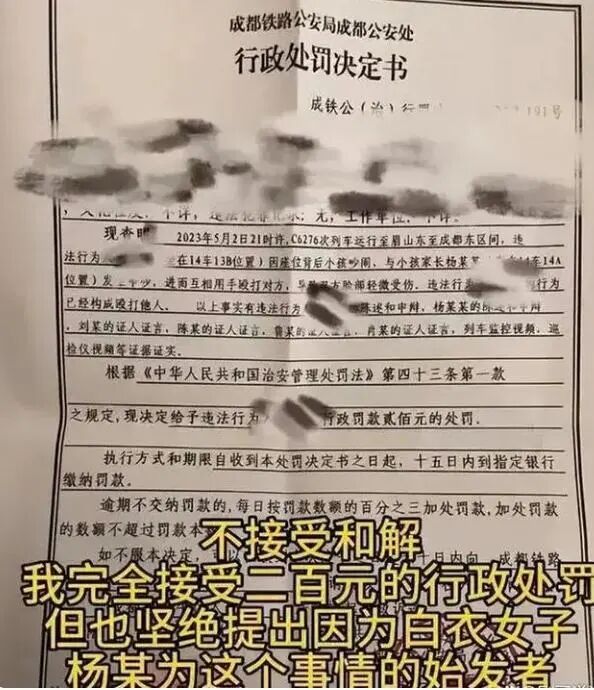 成都铁路公安局成都公安处
行政处罚决定书
成铁公（治）行罚 191号
文化程度：不详，违法犯罪记录：无，工作单位：不详。
现查明 2023年5月2日21时许，C6276次列车运行至眉山东至成都东区间，违
法行为 坐在14车13B位置）因座位背后小孩吵闹、与小孩家长杨某 14车14A
位置）发生争吵，进而互相用手殴打对方，导致双方脸部轻微受伤。违法行 的行为
已经构成殴打他人。 以上事实有违法行为 陈述和申辩、杨某某的陈述和申辩
、刘某的证人证言，陈某的证人证言，鲁某的证人证言，肖某的证人证言，列车监控视频，巡
检仪视频等证据证实。
根据《中华人民共和国治安管理处罚法》第四十三条第一款
之规定，现决定给予违法行为 行政罚款贰佰元的处罚.
执行方式和期限自收到本处罚决定书之日起，十五日内到指定银行
缴纳罚款。
逾期不交纳罚款的，每日按罚款数额的百分之三加处罚款，加处罚款
的数额不超过罚款本
如不服本决定， 以 十日内向 成都铁路
不接受和解
我完全接受二百元的行政处罚
但也坚绝提出因为白衣女子
杨某为这个事情的始发者